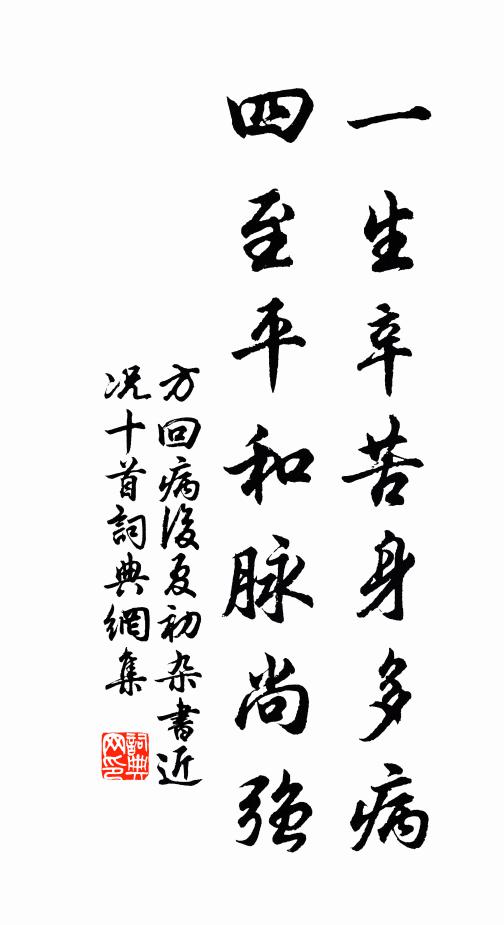 一生辛苦身多病
四至平和脉尚強
方回病後夏初杂書近
况十首詞典網集
詞典
网印